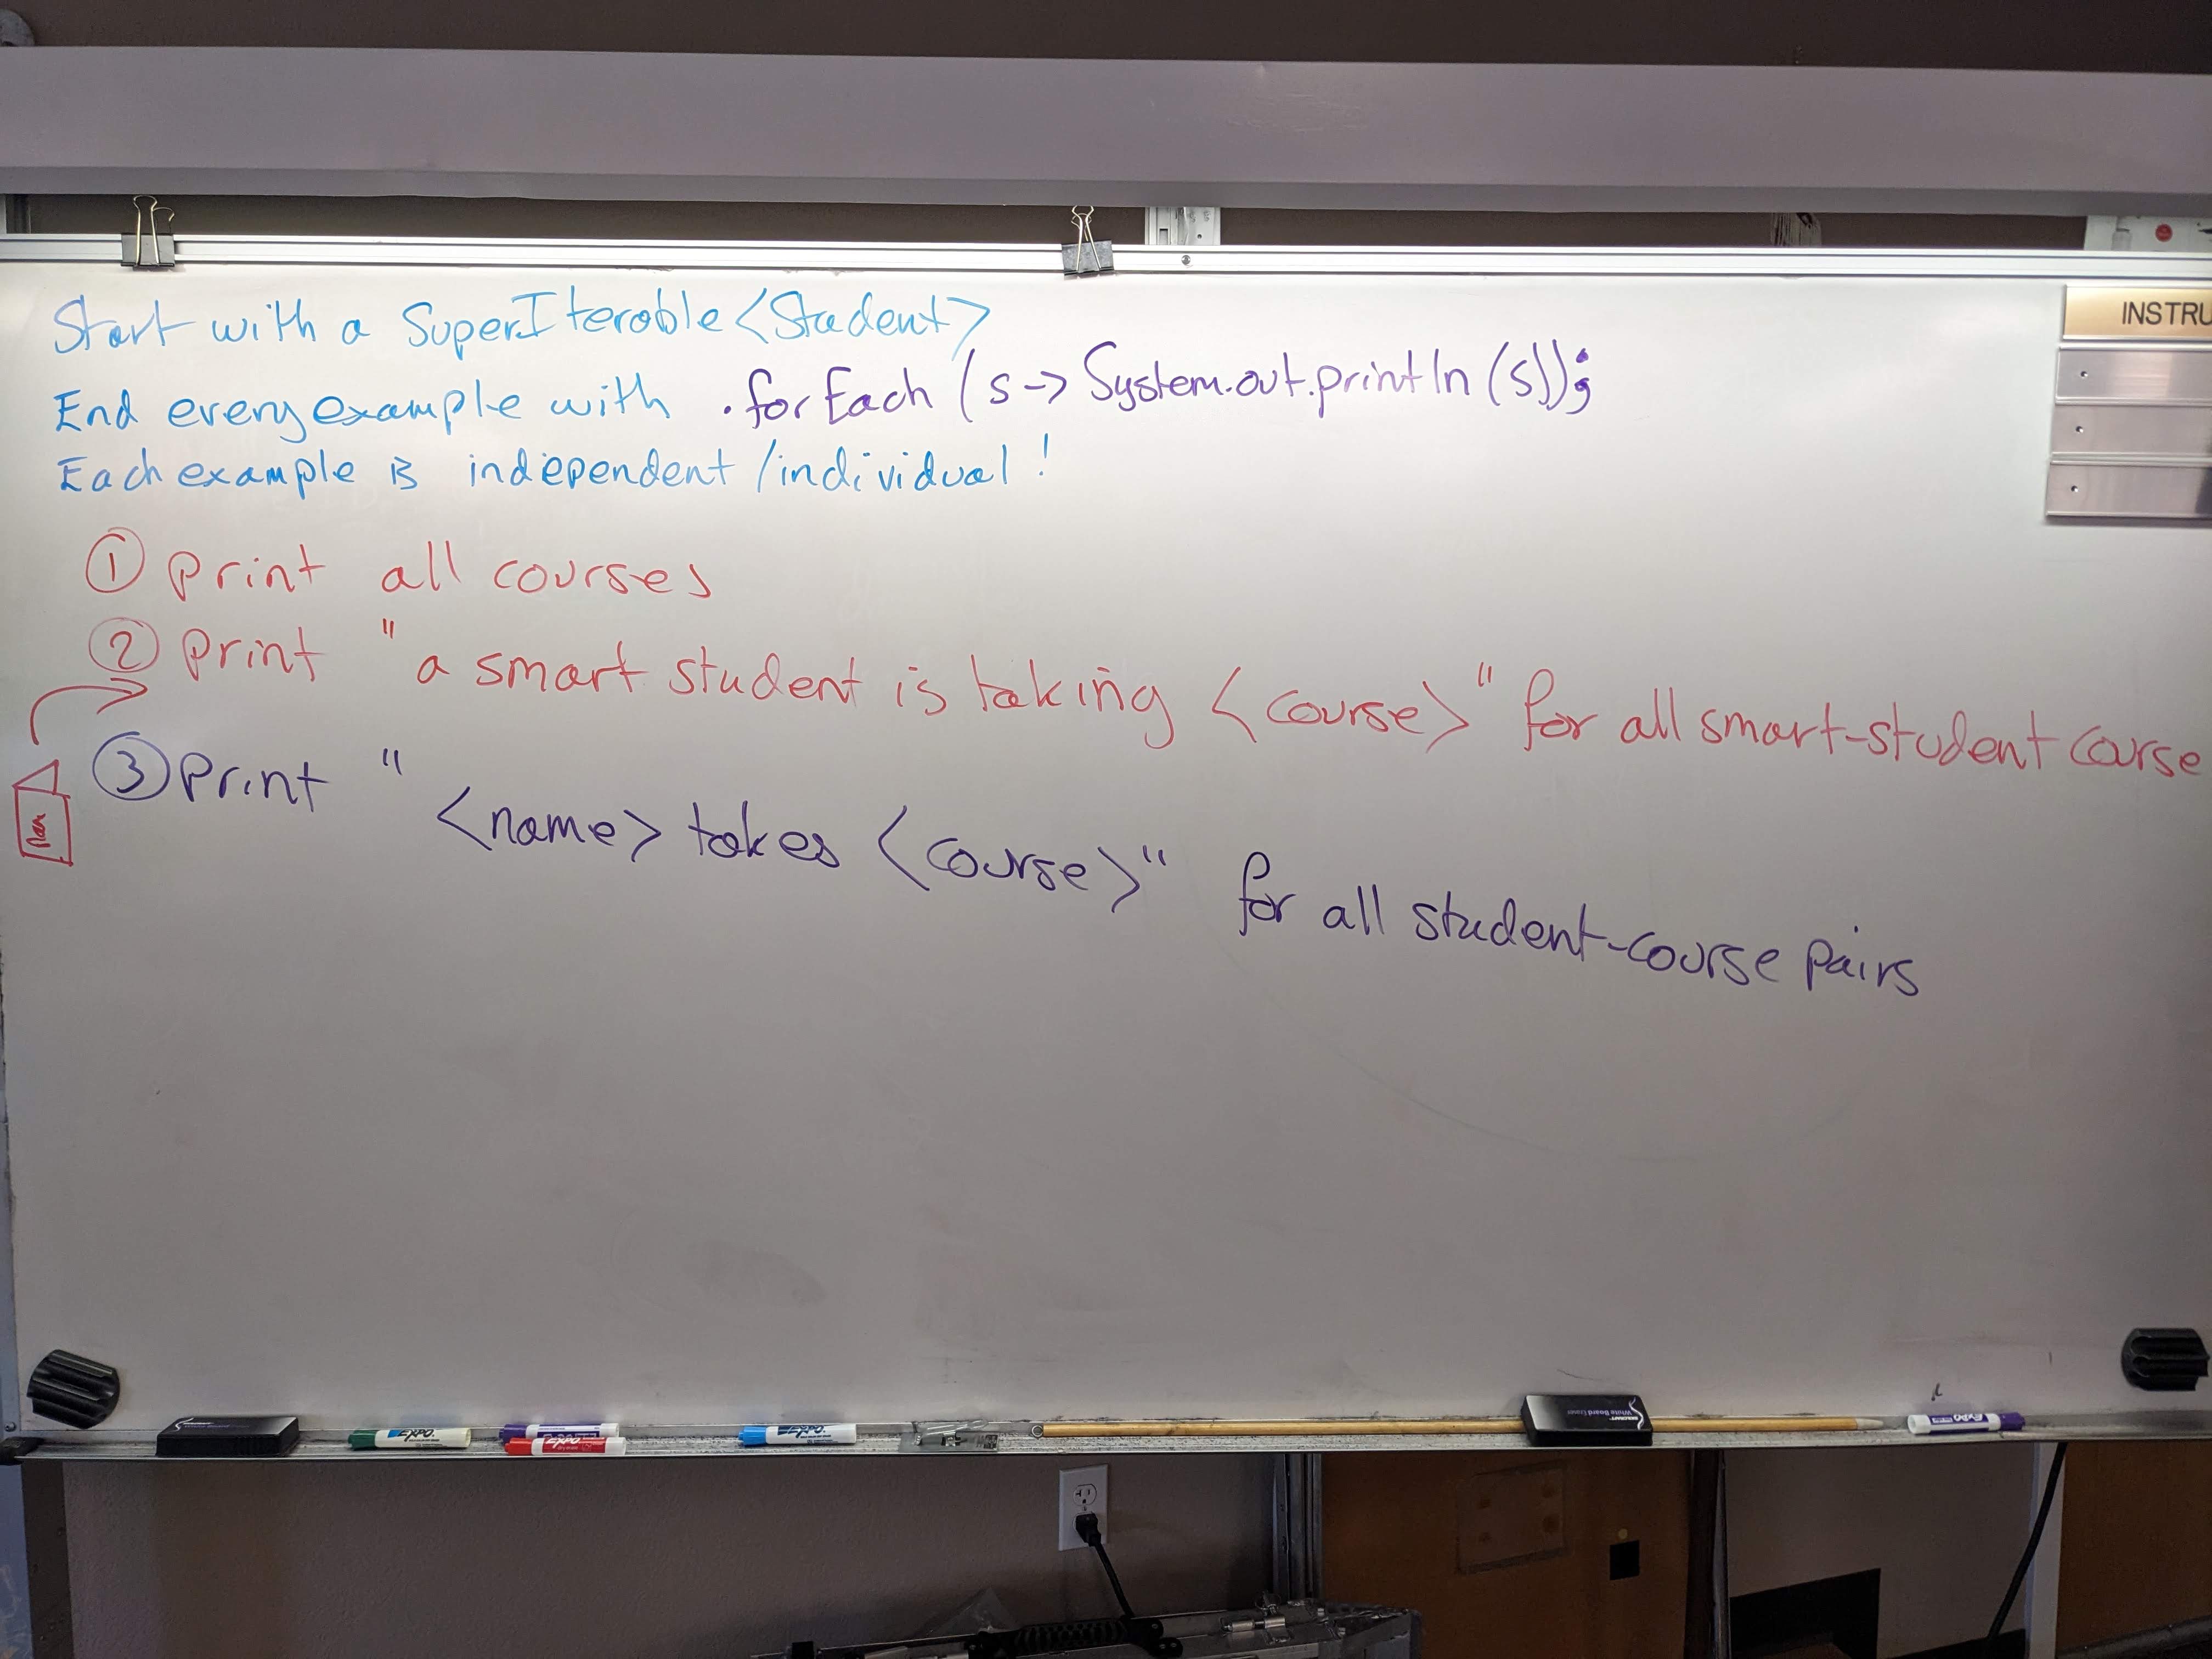 INSTRU
Start with a SuperIterable<Student>
End every example with .forEach (s -> System.out.println (s));
Each example is independent/individual !
① print all courses
② print "a smart student is taking <course>" for all smart-student course
③ print "<name> takes <course>" for all student-course pairs
EXPO
EXPO
EXPO
White Board Eraser
EXPO